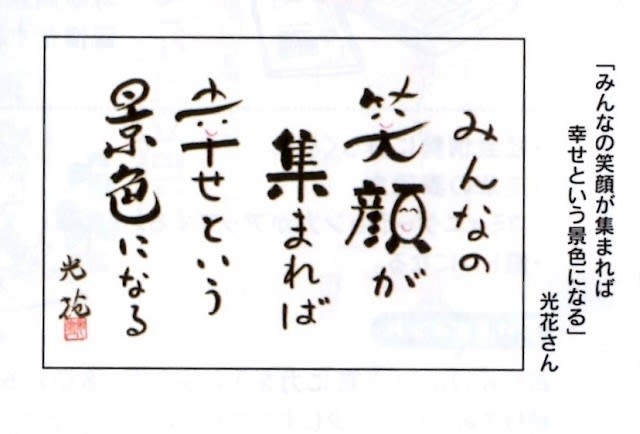 「みんなの笑顔が集まれば
幸せという景色になる」
光花さん
みんなの
笑顔が
集まれば
幸せという
景色になる
光花